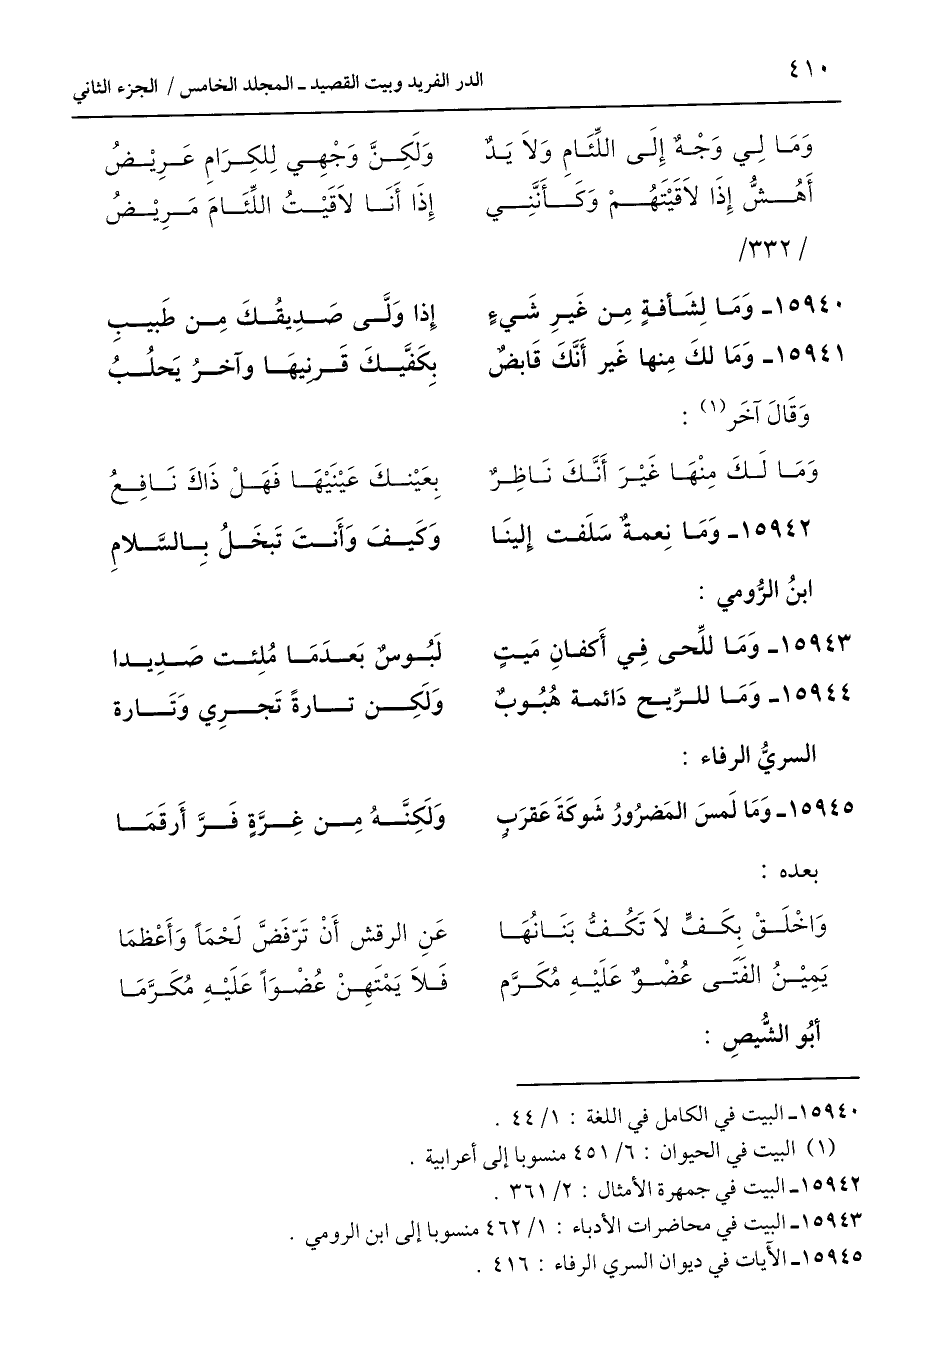 ٤١٠
الدر الفريد وبيت القصيد ـ المجلد الخامس / الجزء الثاني
وَمَا لِي وَجْهٌ إِلَى اللِّئَامِ وَلاَ يَدٌ وَلَكِنَّ وَجْهِي لِلكِرَامِ عَرِيْضُ
أَهُشُّ إِذَا لاَقَيْتَهُمْ وَكَأَنَّنِي إِذَا أَنَا لاَقَيْتُ اللِّئَامَ مَرِيْضُ
/٣٣٢/
١٥٩٤٠ـ وَمَا لِشَأفةٍ مِن غَيرِ شَيءٍ إذا وَلَّى صَدِيقُكَ مِن طَبيبِ
١٥٩٤١ـ وَمَا لكَ مِنها غَير أنَّكَ قابضٌ بِكفَّيكَ قَرنِيهَا وآخرُ يَحلُبُ
وَقَالَ آخَر(١) :
وَمَا لَكَ مِنْهَا غَيْرَ أَنَّكَ نَاظِرٌ بِعَيْنكَ عَيْنَيْهَا فَهَلْ ذَاكَ نَافِعُ
١٥٩٤٢ـ وَمَا نِعمةٌ سَلَفت إلينَا وَكَيفَ وَأنتَ تَبخَلُ بِالسَّلامِ
ابنُ الرُّومي :
١٥٩٤٣ـ وَمَا للِّحى فِي أكفانِ مَيتٍ لَبُوسٌ بَعدَمَا مُلئت صَدِيدا
١٥٩٤٤ـ وَمَا للرِّيح دَائمة هُبُوبٌ وَلَكِن تارةً تَجرِي وَتَارة
السريُّ الرفاء :
١٥٩٤٥ـ وَمَا لَمسَ المَضرُورُ شَوكَةَ عَقرَبٍ وَلَكِنَّهُ مِن غِرَّةٍ فَرَّ أَرقَمَا
بعده :
وَاخْلَقْ بِكَفٍّ لاَ تَكُفُّ بَنَانُهَا عَنِ الرقش أَنْ تَرْفَضَّ لَحْمَاً وَأَعْظمَا
يَمِيْنُ الفَتَى عُضْوٌ عَلَيْهِ مُكَرَّم فَلاَ يَمْتَهِنْ عُضْوَاً عَلَيْهِ مُكَرَّمَا
أَبُو الشُّيصِ :
١٥٩٤٠ـ البيت في الكامل في اللغة : ١/ ٤٤ .
(١) البيت في الحيوان : ٦/ ٤٥١ منسوبا إلى أعرابية .
١٥٩٤٢ـ البيت في جمهرة الأمثال : ٢/ ٣٦١ .
١٥٩٤٣ـ البيت في محاضرات الأدباء : ١/ ٤٦٢ منسوبا إلى ابن الرومي .
١٥٩٤٥ـ الأيات في ديوان السري الرفاء : ٤١٦ .